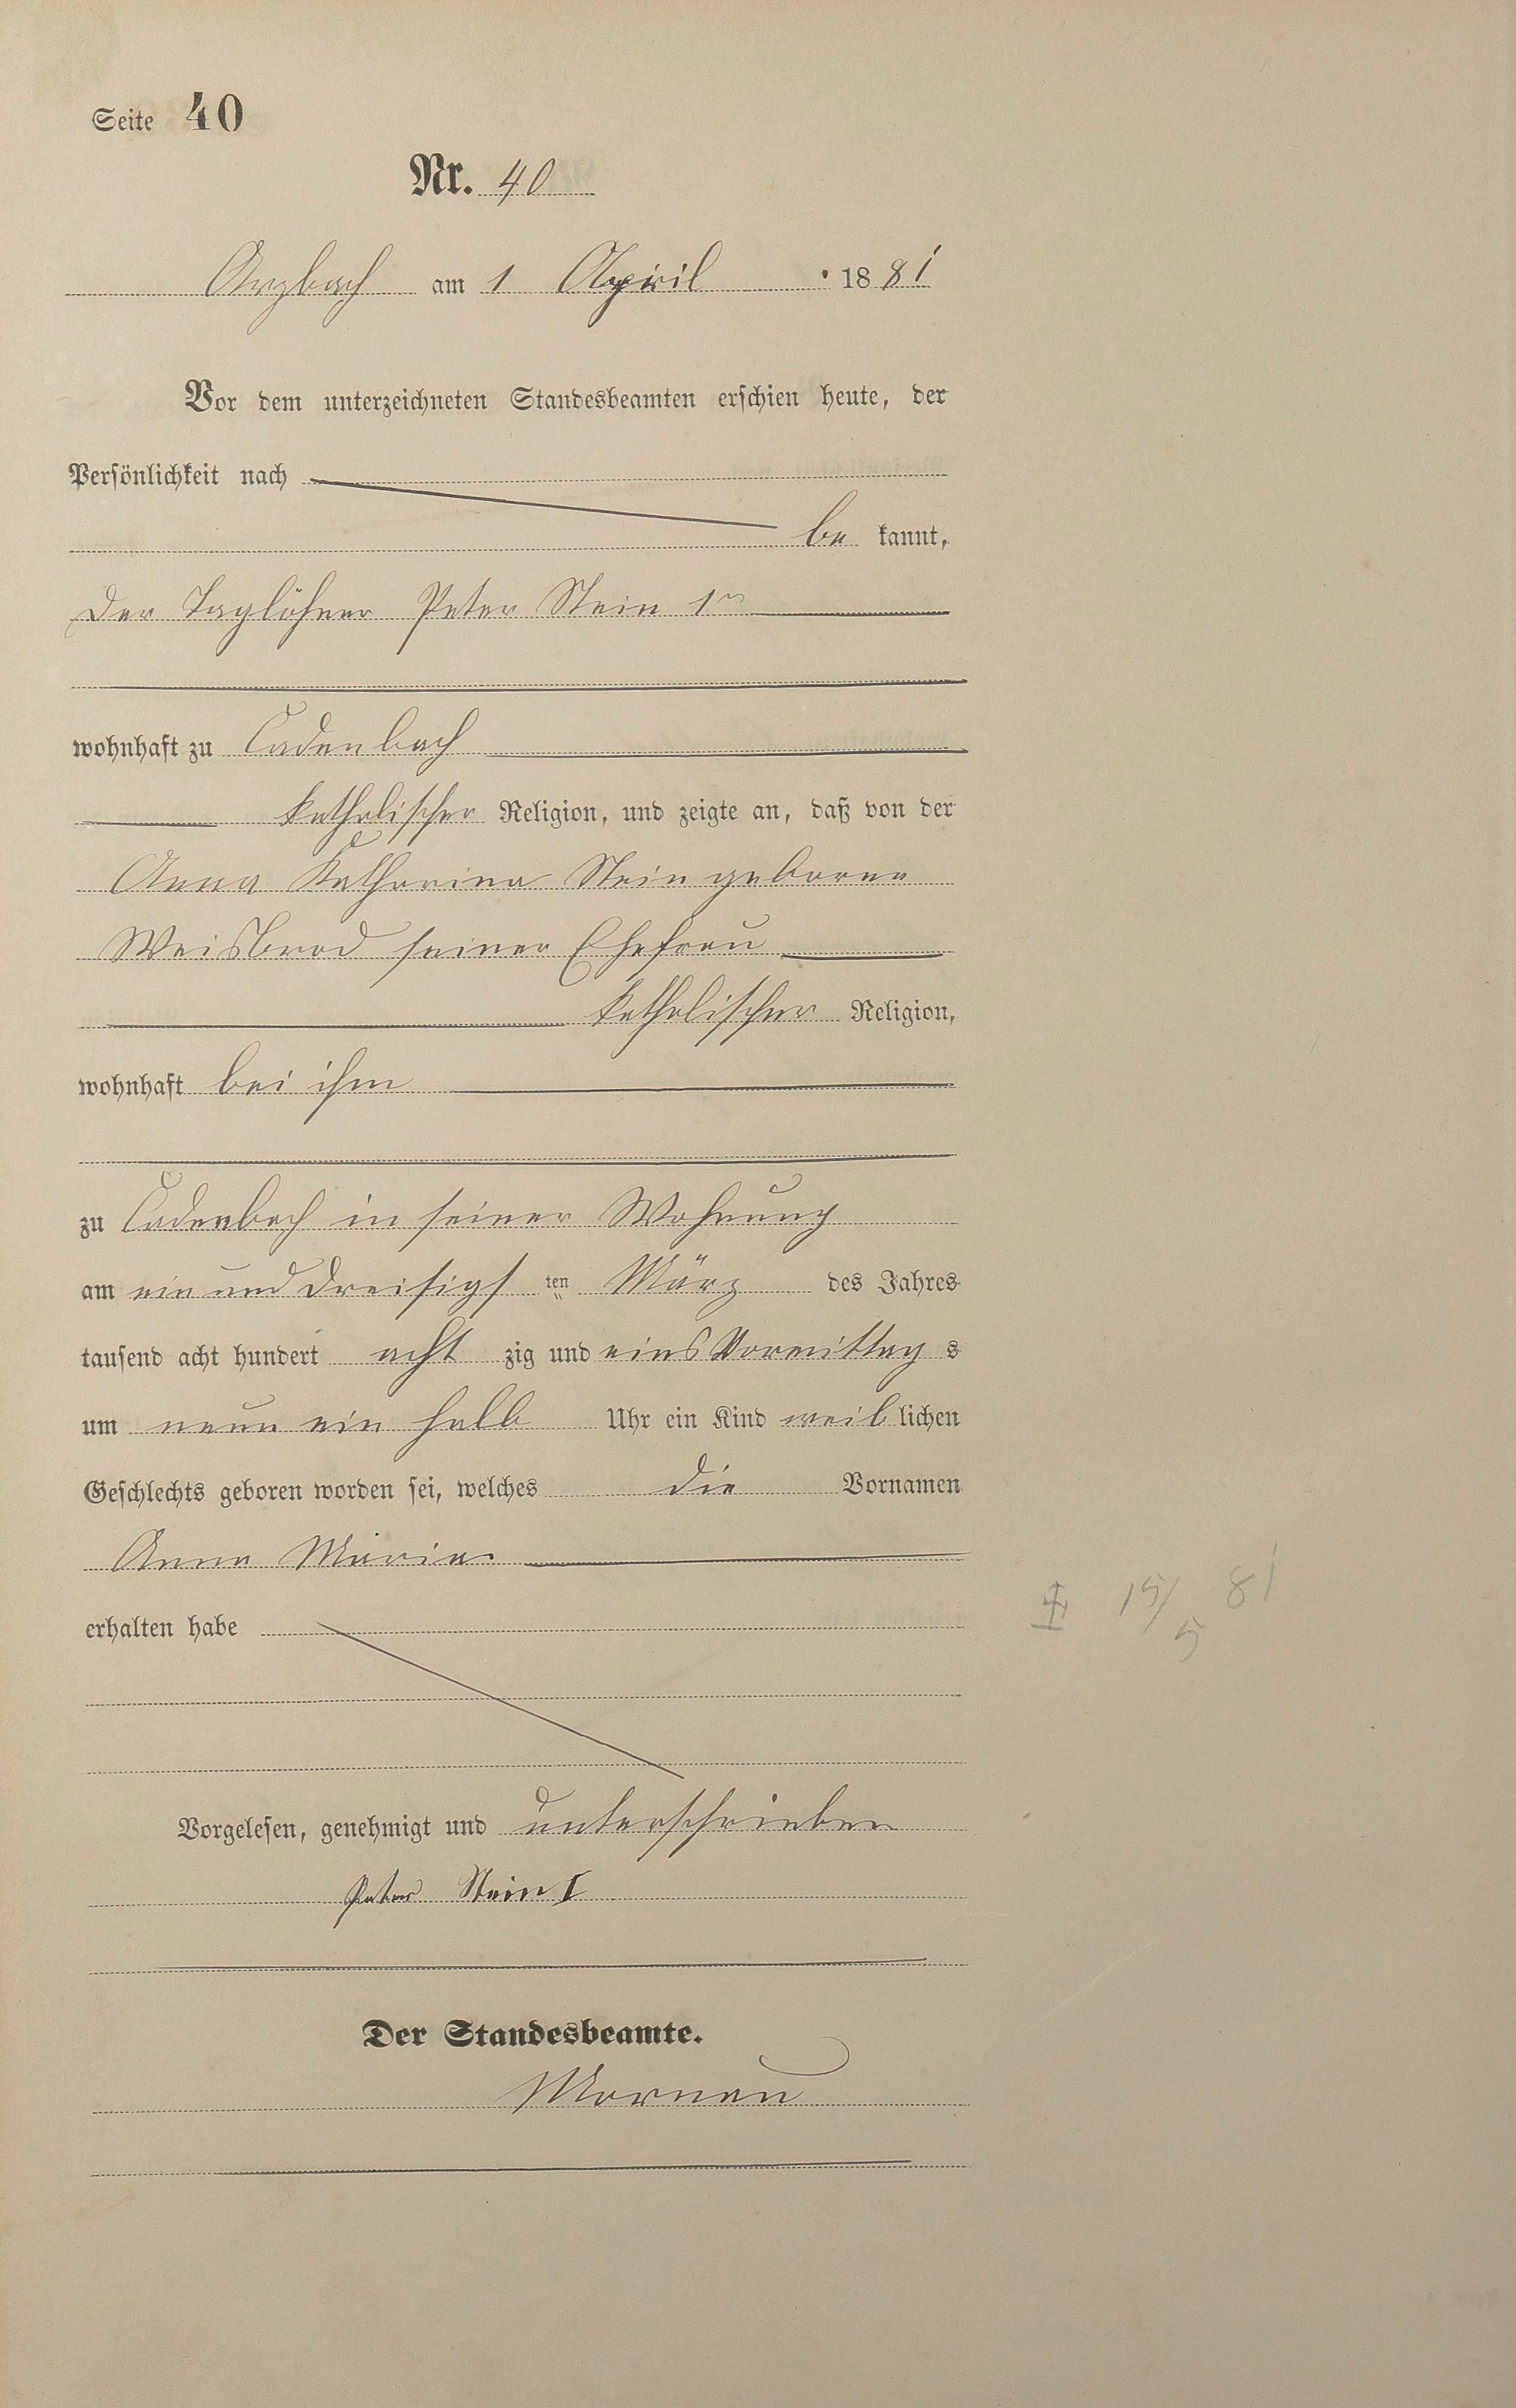 Seite 40
Nr. 40
Arzbach am 1 April 1881
Vor dem unterzeichneten Standesbeamten erschien heute, der
Persönlichkeit nach
be kannt,
der Taglöhner Peter Stein 1r
wohnhaft zu Cadenbach
katholischer Religion, und zeigte an, daß von der
Anna Katharina Stein geborne
Weisbrod seiner Ehefrau
katholischer Religion,
wohnhaft bei ihm
zu Cadenbach in seiner Wohnung
am ein und dreisigs ten März des Jahres
tausend acht hundert acht zig und eins Vormittag s
um neun ein halb Uhr ein Kind weib lichen
Geschlechts geboren worden sei, welches die Vornamen
Anna Maria
erhalten habe
15/5 81
Vorgelesen, genehmigt und unterschrieben
Peter Stein I
Der Standesbeamte.
Mornau